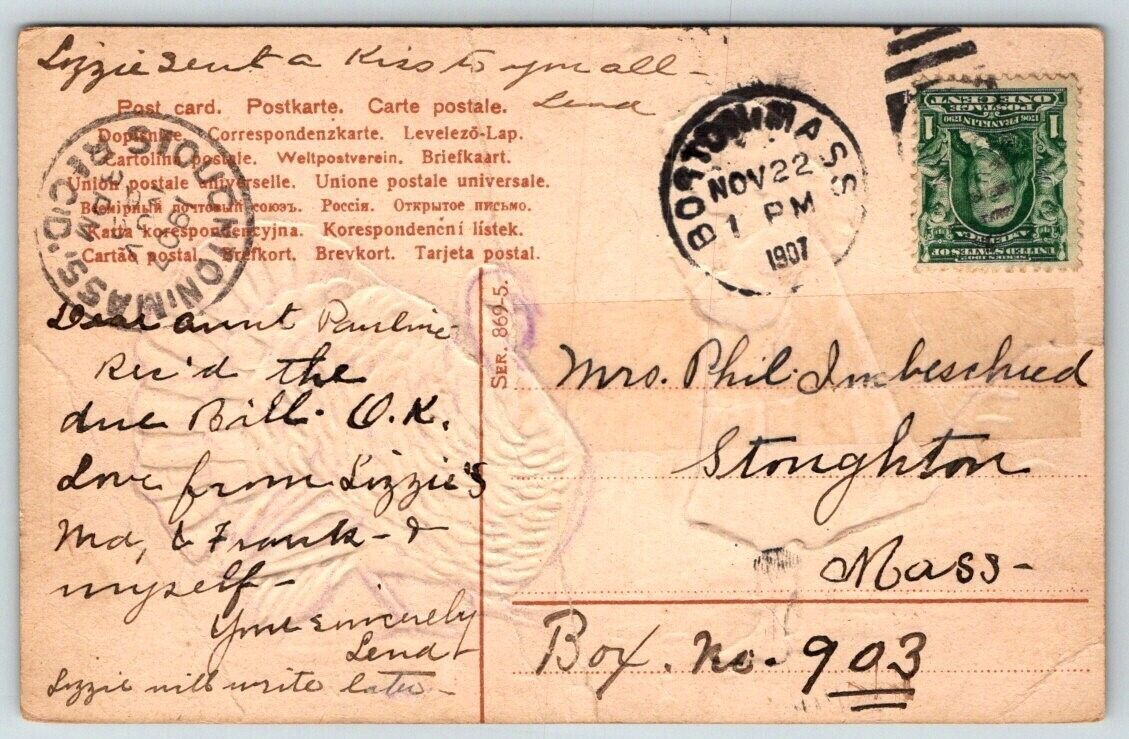 Lizzie sent a Kiss to you all -
Lena
Post card. Postkarte. Carte postale.
Dopisnice. Correspondenzkarte. Levelező-Lap.
Cartolina postale. Weltpostverein. Briefkaart.
Union postale universelle. Unione postale universale.
Всемірный почтовый союзъ. Россія. Открытое письмо.
Karta korespondencyjna. Korespondenční lístek.
Cartão postal. Brefkort. Brevkort. Tarjeta postal.
STOUGHTON, MASS. REC'D.
1907
3 PM
BOSTON, MASS
NOV 22
1 PM
1907
POSTAGE
ONE CENT
1706 FRANKLIN 1790
1 1
UNITED STATES OF
AMERICA
SERIES 1902
Dear aunt Pauline
Rec'd the
due Bill. O.K.
Love from Lizzie's
Ma, & Frank - &
myself -
Your sincerely
Lena
Lizzie will write later -
SER. 869-5.
Mrs. Phil. Imbeschied
Stoughton
Mass -
Box. No. 903